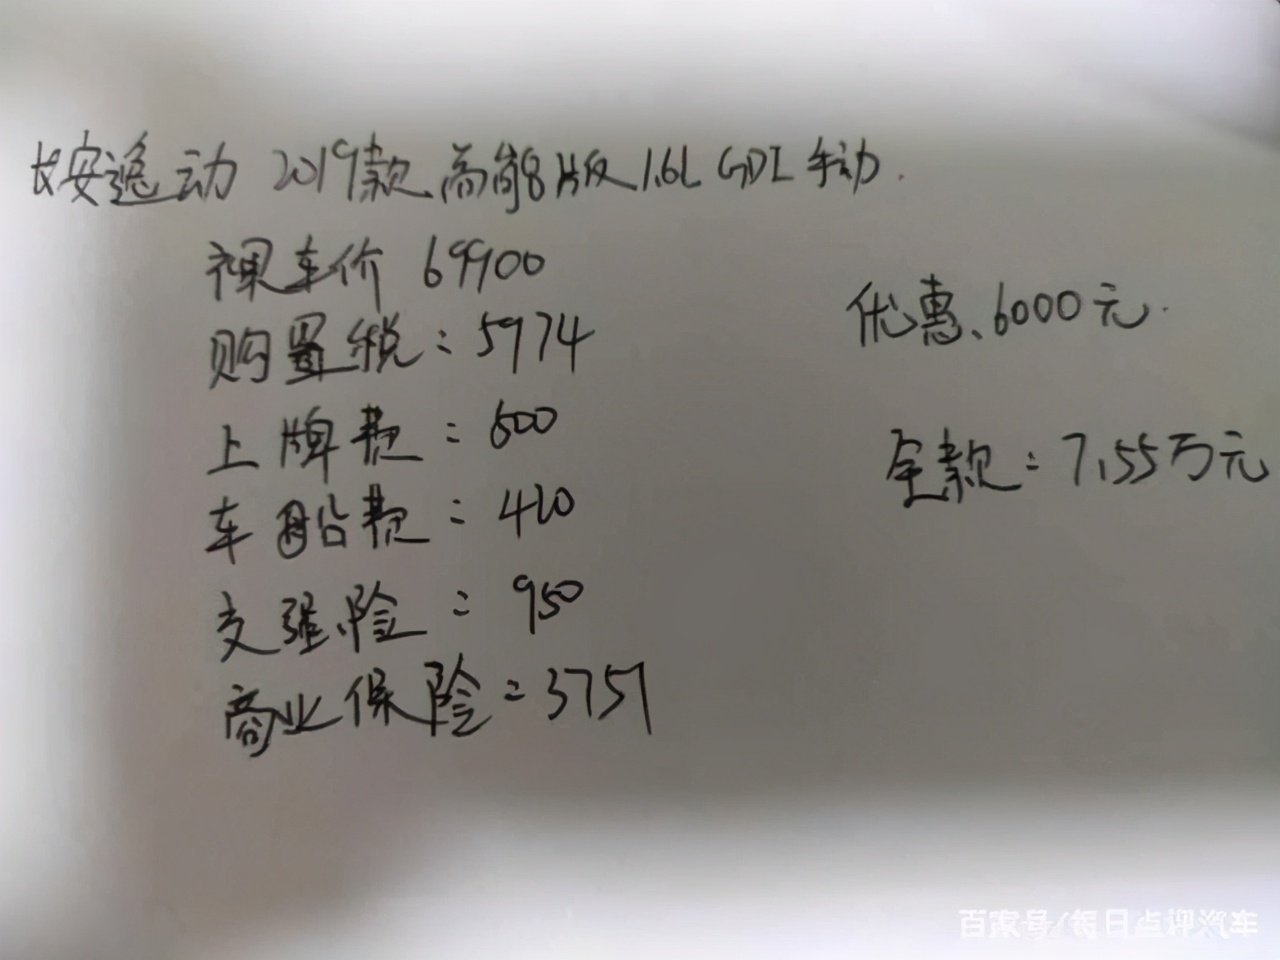 长安逸动 2019款 高能版 1.6L GDI 手动.
裸车价 69900
购置税:5974
上牌费:600
车船费:420
交强险:950
商业保险:3751
优惠、6000元.
全款:7.55万元
百家号/每日点评汽车